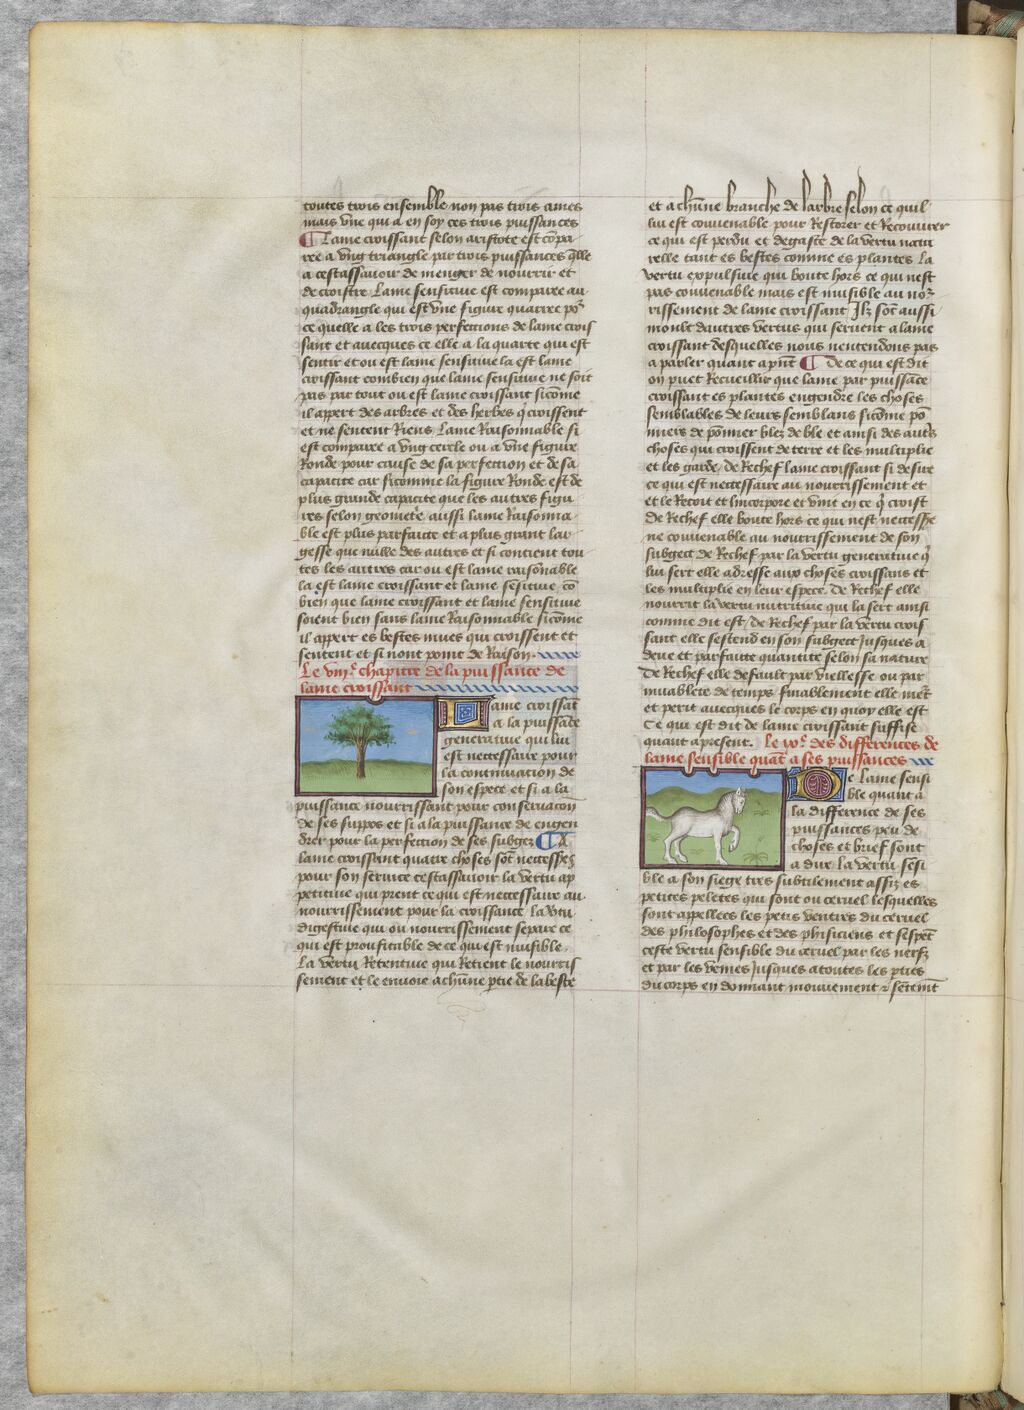 toutes trois ensemble non pas trois ames
mais vne qui a en soy ces trois puissances
¶ Lame croissant selon aristote est cōpa
ree a vng triangle par trois puissances q̄lle
a cestassauoir de menger de nourrir et
de croistre Lame sensitiue est comparee au
quadrangle qui est vne figure quarree po᷑
ce quelle a les trois perfections de lame crois
sant et auecques ce elle a la quarte qui est
sentir et ou est lame sensitiue la est lame
croissant combien que lame sensitiue ne soit
pas par tout ou est lame croissant sicōme
il appert des arbres et des herbes q̄ croissent
et ne sentent Riens Lame Raisonnable si
est comparee a vng cercle ou a vne figure
Ronde pour cause de sa perfection et de sa
capacite car sicomme la figure Ronde est de
plus grande capacite que les autres figu
res selon geometrie aussi lame Raisonna
ble est plus parfaicte et a plus grant lar
gesse que nulle des autres et si contient tou
tes les autres car ou est lame raisōnable
la est lame croissant et lame sēsitiue cō
bien que lame croissant et lame sensitiue
soient bien sans lame Raisonnable sicōme
il appert es bestes mues qui croissent et
sentent et si nont point de Raison.
Le viii.e chapitre de la puissance de
lame croissant
Lame croissāt
a la puissāce
generatiue qui lui
est necessaire pour
la continuacion de
son espece et si a la
puissance nourrissant pour conseruacōn
de ses suppos et si a la puissance de engen
drer pour la perfection de ses subgez ¶ A
lame croissant quatre choses sōt necesses
pour son seruice cestassauoir la vertu ap
petitiue qui prent ce qui est neccessaire au
nourrissement pour la croissance la v̄tu
digestiue qui ou nourrissement separe ce
qui est proufitable de ce qui est nuisible
La vertu Retentiue qui Retient le nourris
sement et le enuoie a chūne p̄tie de la beste
et a chūne branche de larbre selon ce quil
lui est conuenable pour Restorer et Recouurer
ce qui est perdu et degaste de la vertu natu
relle tant es bestes comme es plantes La
vertu expulsiue qui boute hors ce qui nest
pas conuenable mais est nuisible au no᷑
rissement de lame croissant Ilz sōt aussi
moult dautres vertus qui seruent a lame
croissant desquelles nous nentendons pas
a parler quant a pn̄t ¶ De ce qui est dit
on puet Recueillir que lame par puissāce
croissant es plantes engendre les choses
semblables de leurs semblans sicōme pō
miers de pōmier blez de ble et ainsi des aut̄s
choses qui croissent de terre et les multiplie
et les garde, de Rechef lame croissant si desire
ce qui est neccessaire au nourrissement et
et le Recoit et lincorpore et vnit en ce q̄ croist
de Rechef elle boute hors ce qui nest necessr̄e
ne conuenable au nourrissement de son
subgect de Rechef par la vertu generatiue q̄
lui sert elle adresse aux choses croissans et
les multiplie en leur espece. de Rechef elle
nourrit la vertu nutritiue qui la sert ainsi
comme dit est, de Rechef par la vertu crois
sant elle sestend en son subgect Jusques a
deue et parfaicte quantite selon sa nature
De Rechef elle default par viellesse ou par
muablete de temps finablement elle meurt
et perit auecques le corps en quoy elle est
Ce qui est dit de lame croissant suffise
quant a present. Le ix.e des differences de
lame sensible quāt a ses puissances
De lame sensi
ble quant a
la difference de ses
puissances peu de
choses et brief sont
a dire la vertu sēsi
ble a son siege tres subtilement assiz es
petites peletes qui sont ou ceruel lesquelles
sont appellees les petis ventres du ceruel
des philosophes et des phisiciens et sespēt
ceste vertu sensible du ceruel par les nerfz
et par les veines Jusques a toutes les p̄ties
du corps en donnant mouuement ⁊ sētemēt